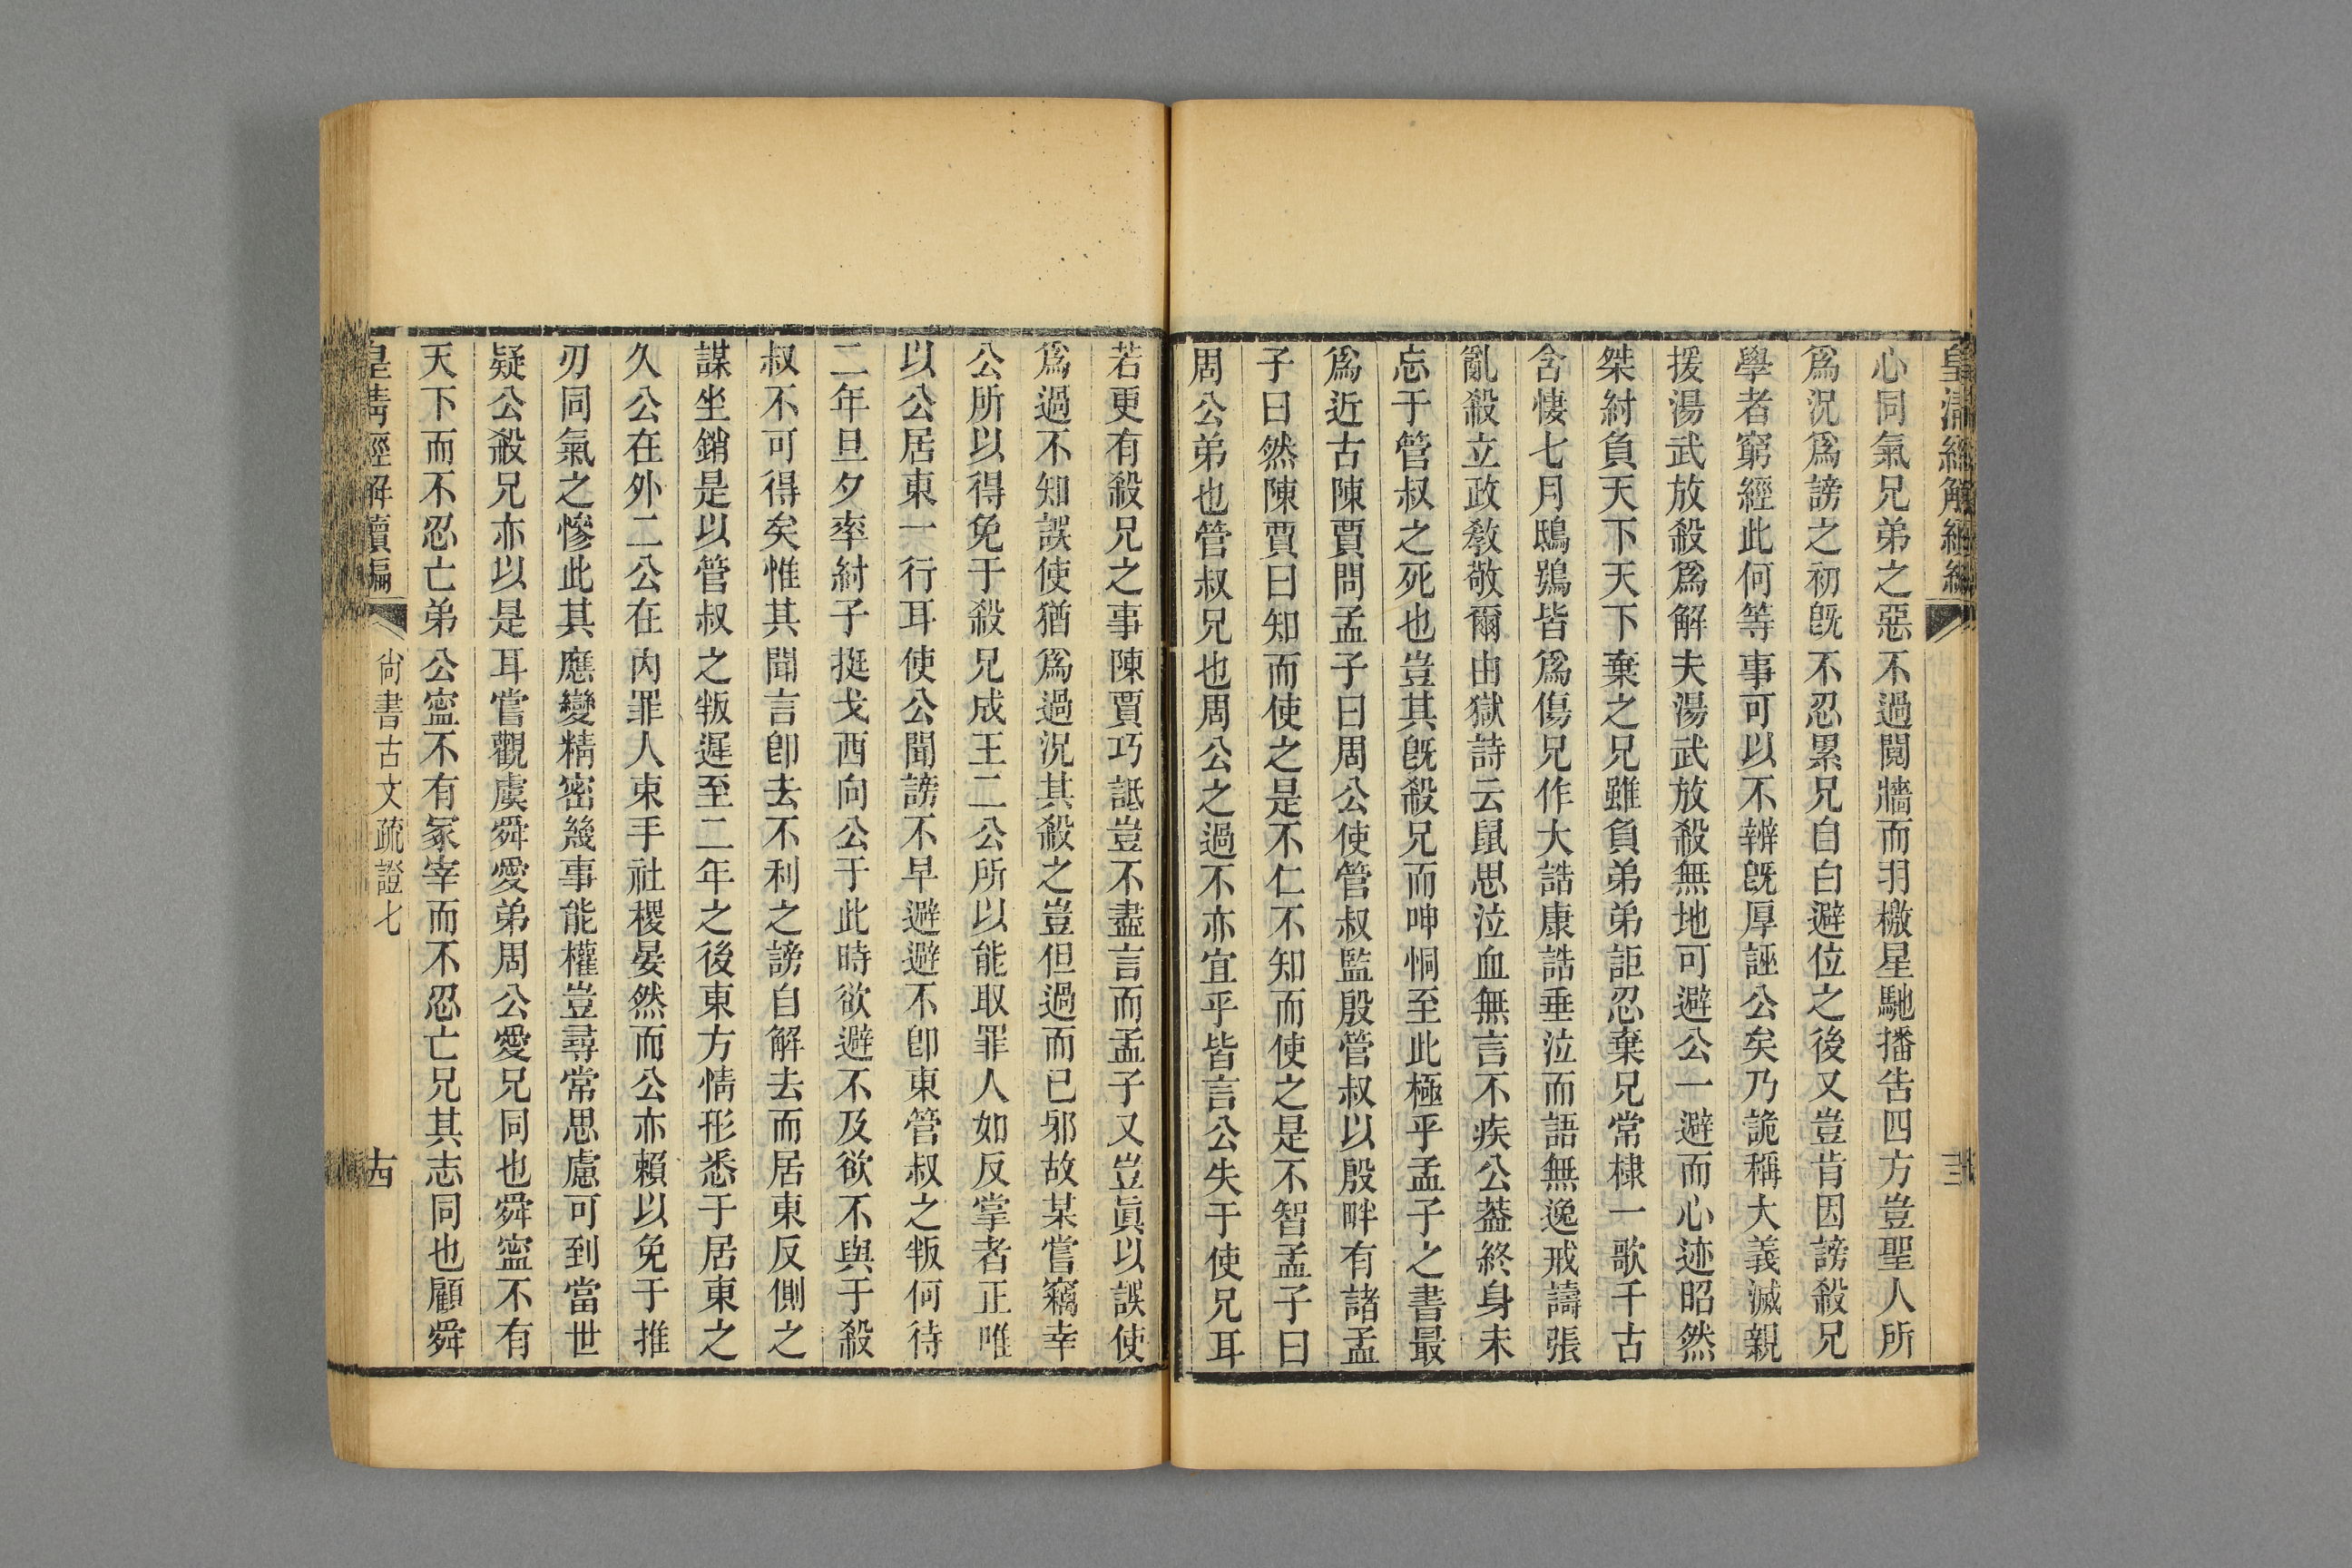 心同氣兄弟之惡不過鬩牆而羽檄星馳播告四方豈聖人所
爲況爲謗之初旣不忍累兄自白避位之後又豈肯因謗殺兄
學者窮經此何等事可以不辨旣厚誣公矣乃詭稱大義滅親
援湯武放殺爲解夫湯武放殺無地可避公一避而心迹昭然
桀紂負天下天下棄之兄雖負弟弟詎忍棄兄常棣一歌千古
含悽七月鴟鴞皆爲傷兄作大誥康誥垂泣而語無逸戒譸張
亂殺立政敎敬爾由獄詩云鼠思泣血無言不疾公葢終身未
忘于管叔之死也豈其旣殺兄而呻恫至此極乎孟子之書最
爲近古陳賈問孟子曰周公使管叔監殷管叔以殷畔有諸孟
子曰然陳賈曰知而使之是不仁不知而使之是不智孟子曰
周公弟也管叔兄也周公之過不亦宜乎皆言公失于使兄耳
若更有殺兄之事陳賈巧詆豈不盡言而孟子又豈眞以誤使
爲過不知誤使猶爲過況其殺之豈但過而已邪故某嘗竊幸
公所以得免于殺兄成王二公所以能取罪人如反掌者正唯
以公居東一行耳使公聞謗不早避避不卽東管叔之叛何待
二年旦夕率紂子挺戈西向公于此時欲避不及欲不與于殺
叔不可得矣惟其聞言卽去不利之謗自解去而居東反側之
謀坐銷是以管叔之叛遲至二年之後東方情形悉于居東之
久公在外二公在內罪人束手社稷晏然而公亦賴以免于推
刃同氣之慘此其應變精密幾事能權豈尋常思慮可到當世
疑公殺兄亦以是耳嘗觀虞舜愛弟周公愛兄同也舜寍不有
天下而不忍亡弟公寍不有冢宰而不忍亡兄其志同也顧舜
皇淸經解續編
尙書古文疏證七
十四